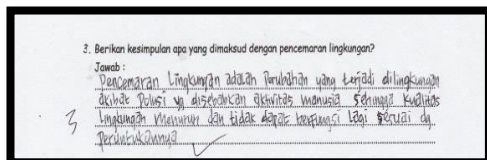 3. Berikan kesimpulan apa yang dimaksud dengan pencemaran lingkungan?
Jawab :
Pencemaran Lingkungan adalah Perubahan yang terjadi dilingkungan
akibat Polusi yg disebabkan aktivitas manusia sehingga kualitas
3 Lingkungan Menurun dan tidak dapat berfungsi Lagi sesuai dg
Peruntukannya